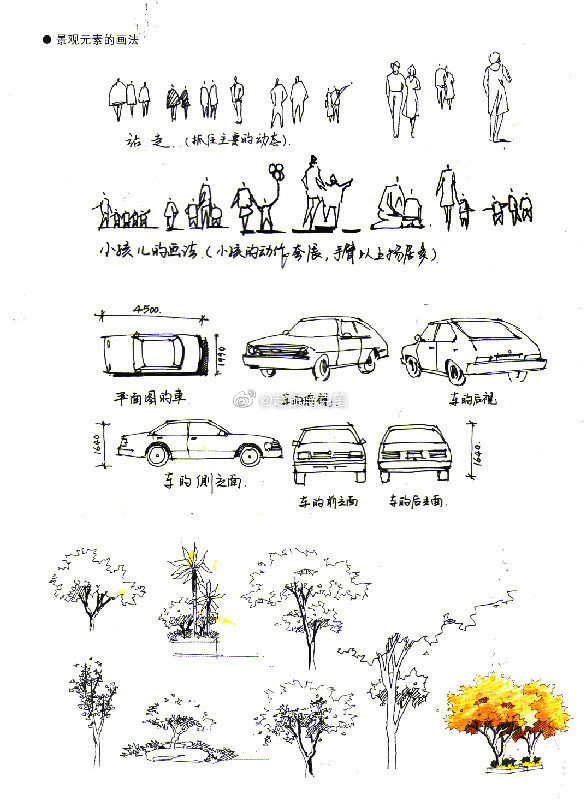 ● 景观元素的画法
站 走 (抓住主要的动态).
小孩儿的画法 (小孩的动作夸张, 手臂以上扬居多)
4500
1990
平面图的车
车的后视
1640
车的侧立面
车的前立面
车的后立面
1640